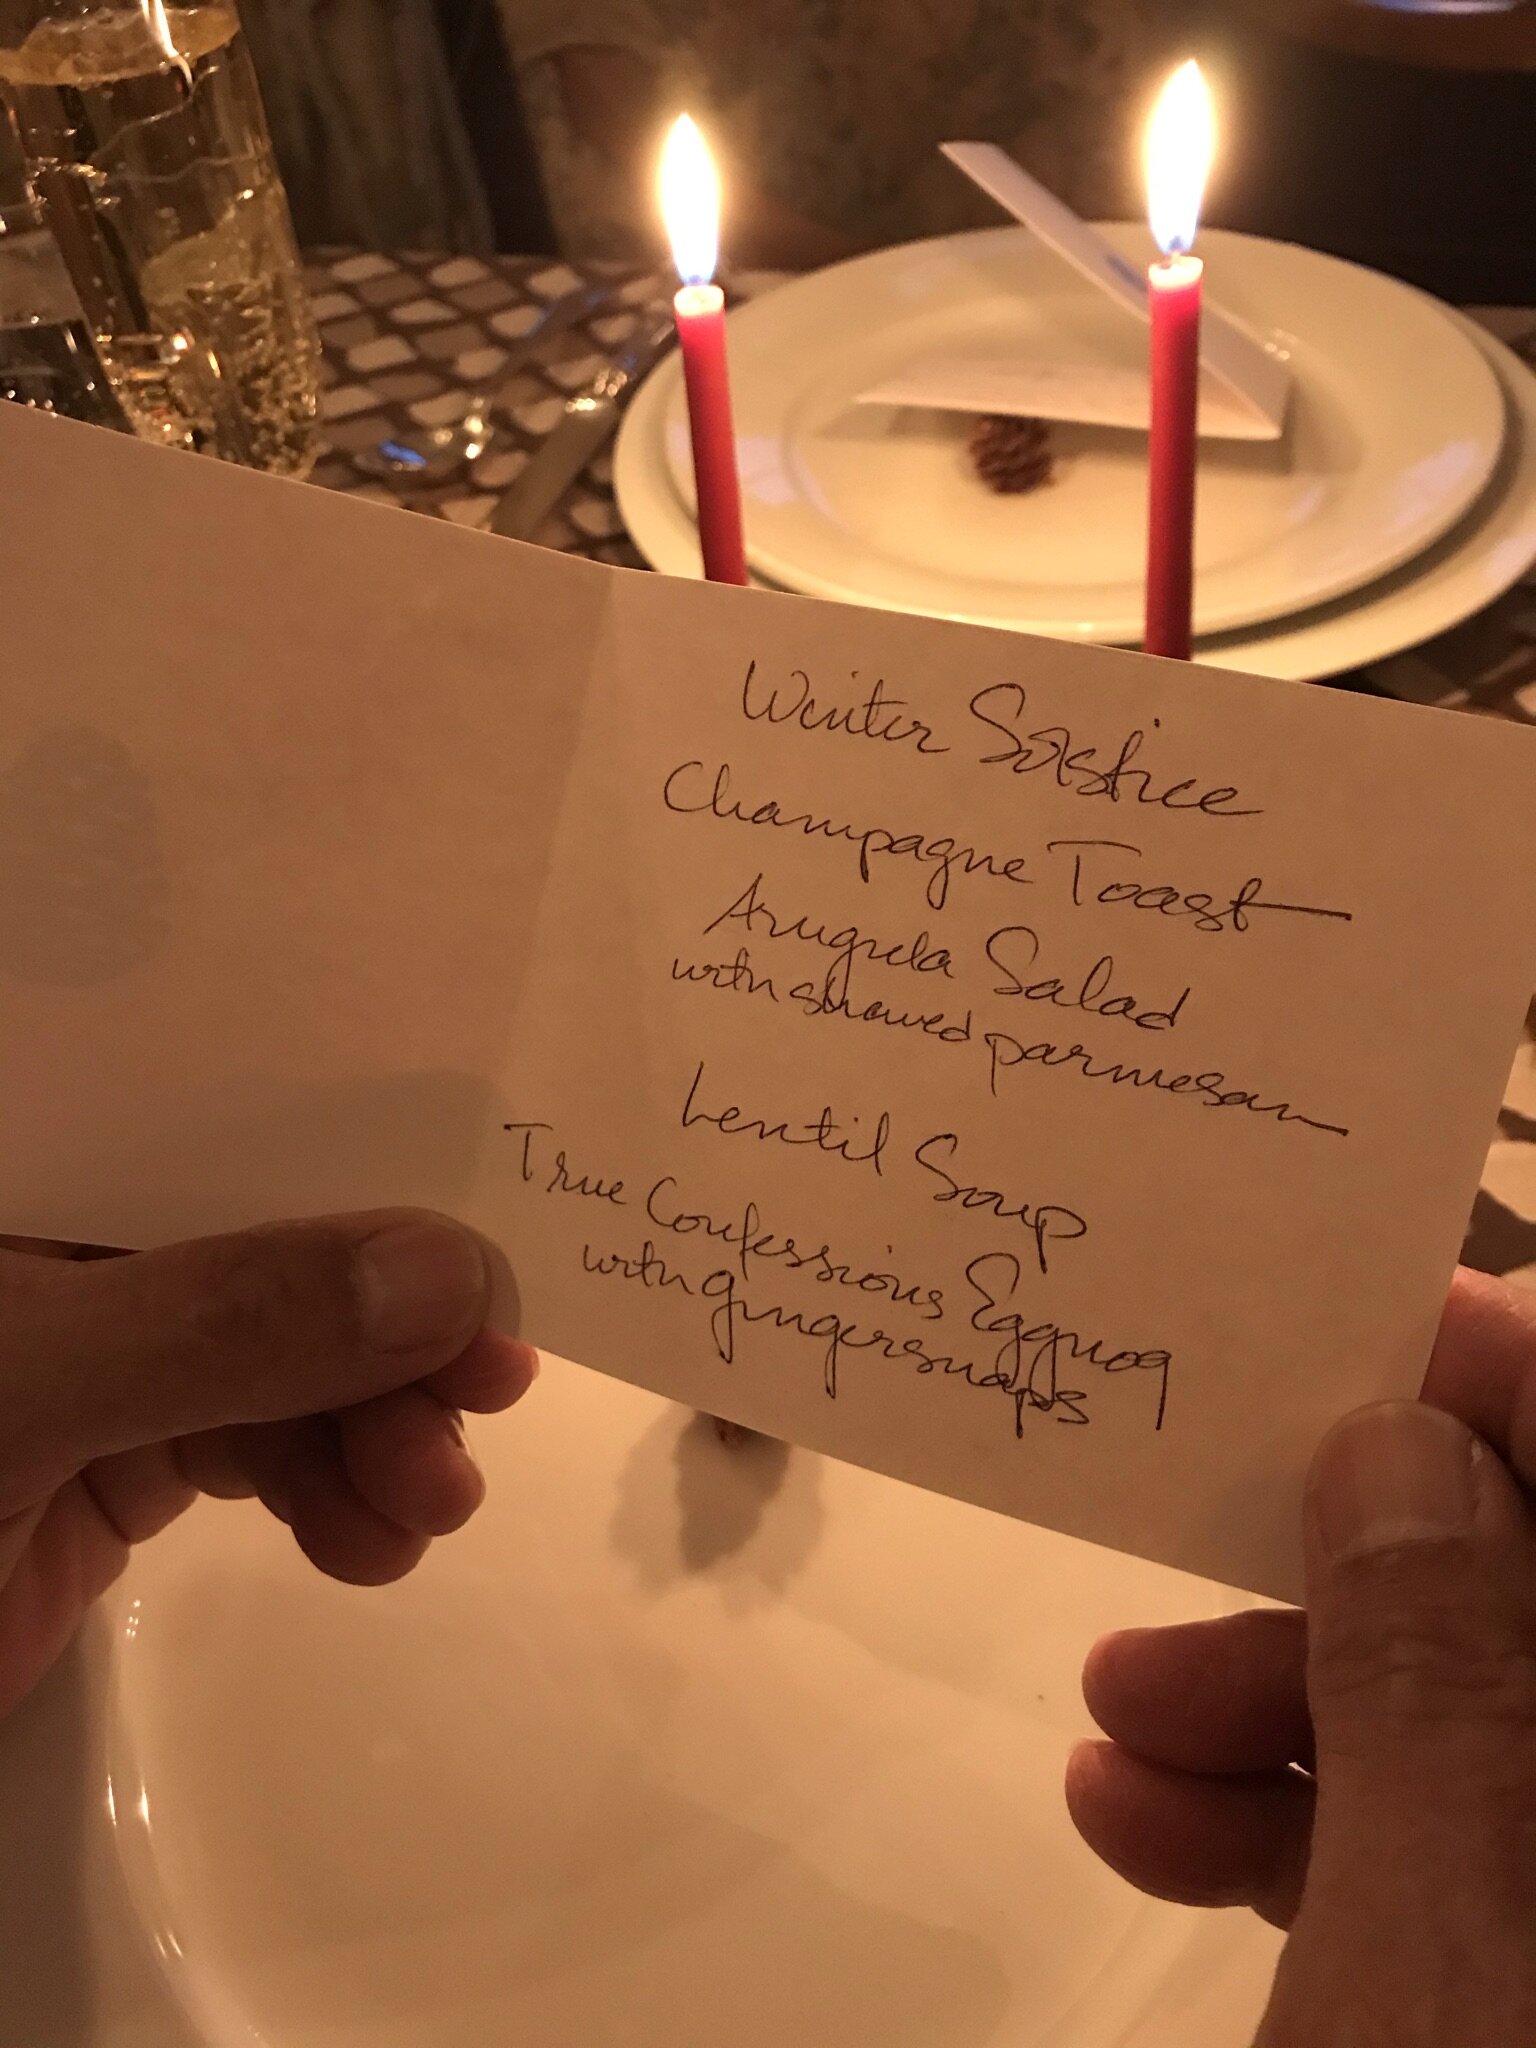 Winter Solstice
Champagne Toast
Arugula Salad
with shaved parmesan
Lentil Soup
True Confessions Eggnog
with gingersnaps